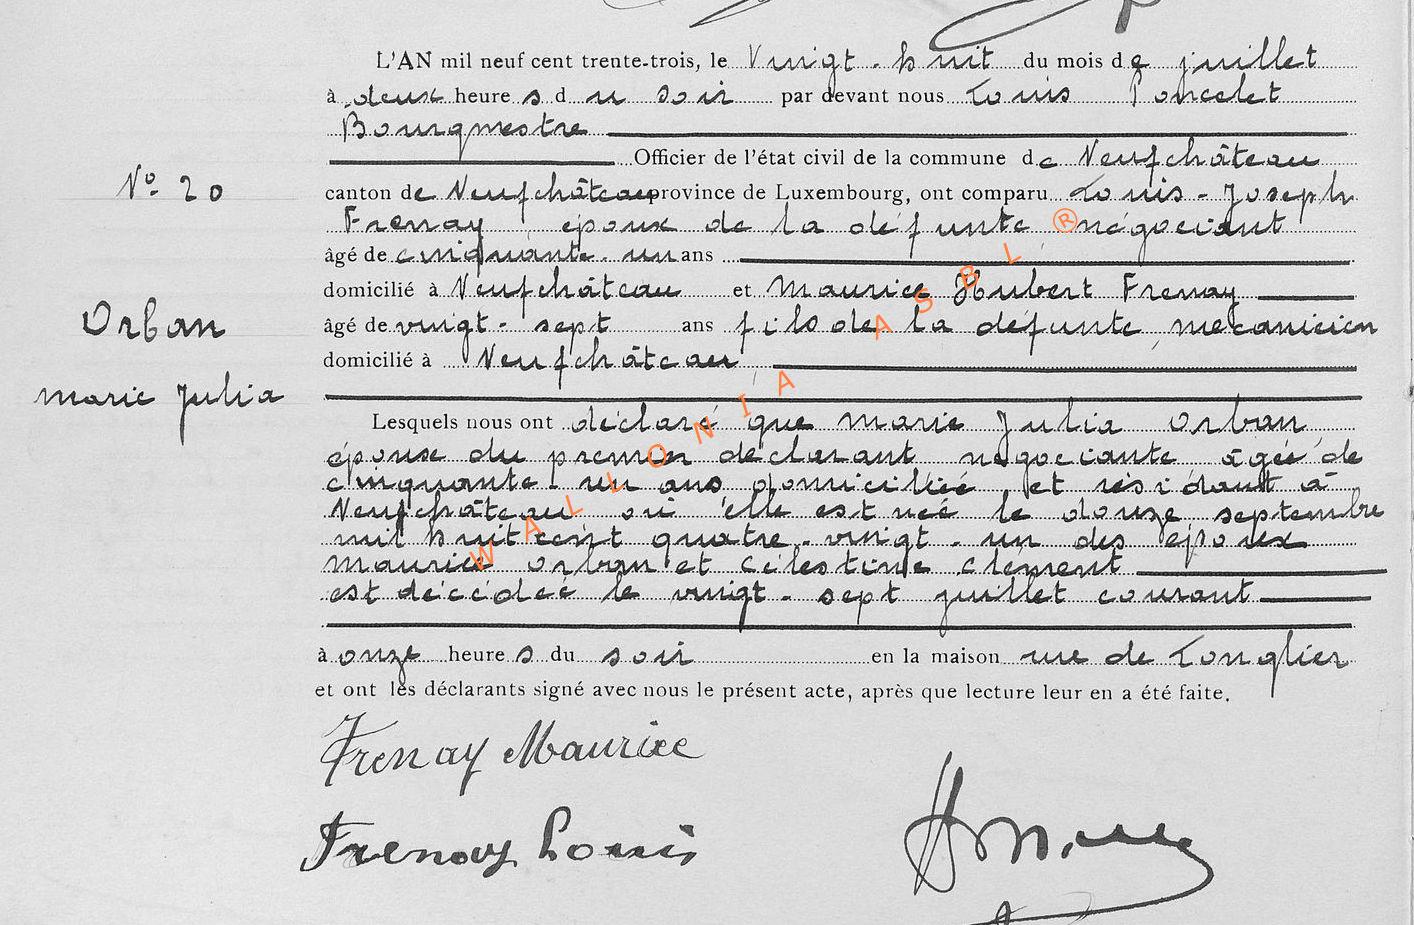 L'AN mil neuf cent trente-trois, le Vingt-huit du mois de juillet
à deux heures du soir par devant nous Louis Poncelet
Bourgmestre
Officier de l'état civil de la commune de Neufchâteau
N° 20
canton de Neufchâteau province de Luxembourg, ont comparu Louis-Joseph
Frenay époux de la défunte négociant
âgé de cinquante-un ans
domicilié à Neufchâteau et Maurice Hubert Frenay
Orban
âgé de vingt-sept ans fils de la défunte, mécanicien
domicilié à Neufchâteau
Marie Julia
Lesquels nous ont déclaré que Marie Julia Orban,
épouse du premier déclarant négociante âgée de
cinquante-un ans domiciliée et résidant à
Neufchâteau où elle est née le douze septembre
mil huit cent quatre-vingt-un des époux
Maurice Orban et Célestine Clément
est décédée le vingt-sept juillet courant
à onze heures du soir en la maison rue de Longlier
et ont les déclarants signé avec nous le présent acte, après que lecture leur en a été faite.
Frenay Maurice
Frenay Louis
WALLONIA ASBL ®